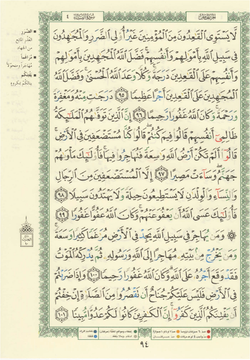 لَّا يَسْتَوِى ٱلْقَٰعِدُونَ مِنَ ٱلْمُؤْمِنِينَ غَيْرُ أُو۟لِى ٱلضَّرَرِ وَٱلْمُجَٰهِدُونَ
فِى سَبِيلِ ٱللَّهِ بِأَمْوَٰلِهِمْ وَأَنفُسِهِمْ فَضَّلَ ٱللَّهُ ٱلْمُجَٰهِدِينَ بِأَمْوَٰلِهِمْ
وَأَنفُسِهِمْ عَلَى ٱلْقَٰعِدِينَ دَرَجَةً وَكُلًّا وَعَدَ ٱللَّهُ ٱلْحُسْنَىٰ وَفَضَّلَ ٱللَّهُ
ٱلْمُجَٰهِدِينَ عَلَى ٱلْقَٰعِدِينَ أَجْرًا عَظِيمًا ٩٥ دَرَجَٰتٍ مِّنْهُ وَمَغْفِرَةً
وَرَحْمَةً وَكَانَ ٱللَّهُ غَفُورًا رَّحِيمًا ٩٦ إِنَّ ٱلَّذِينَ تَوَفَّىٰهُمُ ٱلْمَلَٰٓئِكَةُ
ظَالِمِىٓ أَنفُسِهِمْ قَالُوا۟ فِيمَ كُنتُمْ قَالُوا۟ كُنَّا مُسْتَضْعَفِينَ فِى ٱلْأَرْضِ
قَالُوٓا۟ أَلَمْ تَكُنْ أَرْضُ ٱللَّهِ وَٰسِعَةً فَتُهَاجِرُوا۟ فِيهَا فَأُو۟لَٰٓئِكَ مَأْوَىٰهُمْ
جَهَنَّمُ وَسَآءَتْ مَصِيرًا ٩٧ إِلَّا ٱلْمُسْتَضْعَفِينَ مِنَ ٱلرِّجَالِ
وَٱلنِّسَآءِ وَٱلْوِلْدَٰنِ لَا يَسْتَطِيعُونَ حِيلَةً وَلَا يَهْتَدُونَ سَبِيلًا ٩٨
فَأُو۟لَٰٓئِكَ عَسَى ٱللَّهُ أَن يَعْفُوَ عَنْهُمْ وَكَانَ ٱللَّهُ عَفُوًّا غَفُورًا
٩٩ وَمَن يُهَاجِرْ فِى سَبِيلِ ٱللَّهِ يَجِدْ فِى ٱلْأَرْضِ مُرَٰغَمًا كَثِيرًا وَسَعَةً
وَمَن يَخْرُجْ مِنۢ بَيْتِهِۦ مُهَاجِرًا إِلَى ٱللَّهِ وَرَسُولِهِۦ ثُمَّ يُدْرِكْهُ ٱلْمَوْتُ
فَقَدْ وَقَعَ أَجْرُهُۥ عَلَى ٱللَّهِ وَكَانَ ٱللَّهُ غَفُورًا رَّحِيمًا ١٠٠ وَإِذَا ضَرَبْتُمْ
فِى ٱلْأَرْضِ فَلَيْسَ عَلَيْكُمْ جُنَاحٌ أَن تَقْصُرُوا۟ مِنَ ٱلصَّلَوٰةِ إِنْ خِفْتُمْ
أَن يَفْتِنَكُمُ ٱلَّذِينَ كَفَرُوٓا۟ إِنَّ ٱلْكَٰفِرِينَ كَانُوا۟ لَكُمْ عَدُوًّا مُّبِينًا ١٠١
٩٤